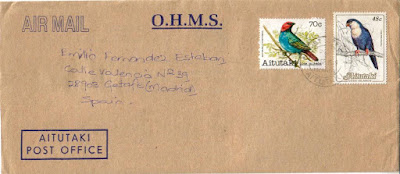 AIR MAIL
O.H.M.S.
70c
Aitutaki
45c
Aitutaki
Emilio Fernandez Esteban
Calle Valencia NR 39
Madrid
Spain.
AITUTAKI
POST OFFICE